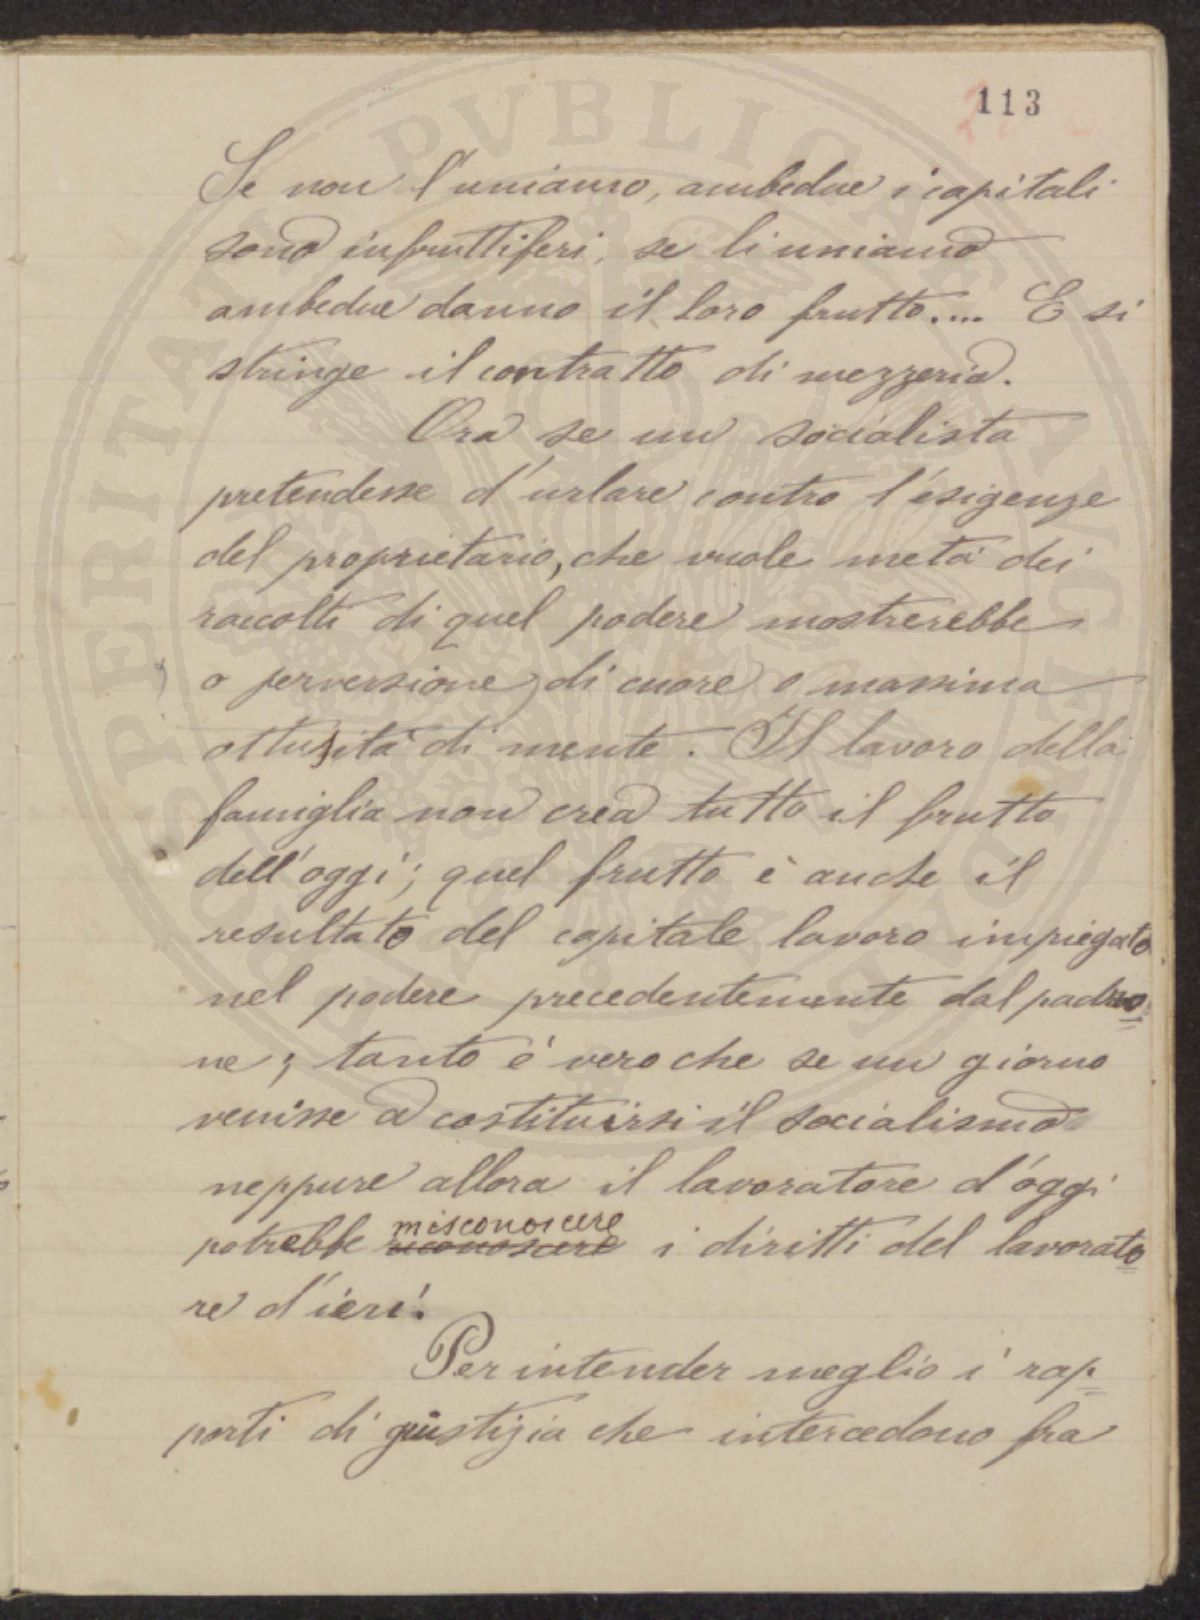 113
Se non l'uniamo, ambedue i capitali
sono infruttiferi, se li uniamo
ambedue danno il loro frutto.... E si
stringe il contratto di mezzeria.
Ora se un socialista
pretendesse d'urlare contro l'esigenze
del proprietario, che vuole metà dei
raccolti di quel podere mostrerebbe
o perversione di cuore o massima
ottusità di mente. Il lavoro della
famiglia non crea tutto il frutto
dell'oggi; quel frutto è anche il
resultato del capitale lavoro impiegato
nel podere precedentemente dal padro=
ne; tanto è vero che se un giorno
venisse a costituirsi il socialismo
neppure allora il lavoratore d'oggi
misconoscere
potrebbe riconoscere i diritti del lavorato=
re d'ieri.
Per intender meglio i rap=
porti di giustizia che intercedono fra
PROSPERITATI PVBLICAE AVGENDAE